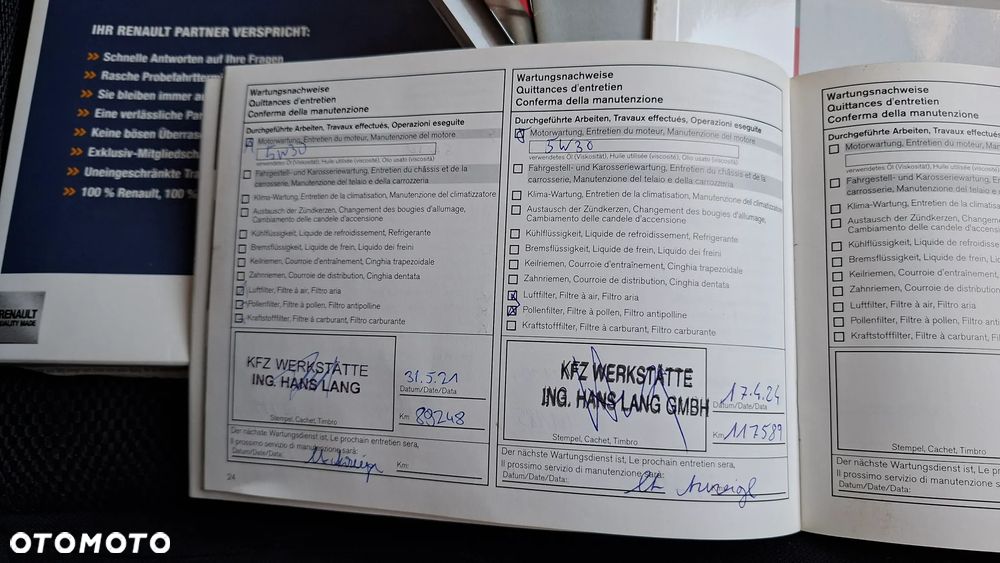 IHR RENAULT PARTNER VERSPRICHT:
>> Schnelle Antworten auf Ihre Fragen
>> Rasche
>> Sie bleiben immer
>> Eine verlässliche
>> Keine bösen
>> Exklusiv-
>> Uneingeschränkte
>> 100 % Renault, 100 %
RENAULT
Wartungsnachweise
Quittances d'entretien
Conferma della manutenzione
Durchgeführte Arbeiten, Travaux effectués, Operazioni eseguite
Motorwartung, Entretien du moteur, Manutenzione del motore
5W30
verwendetes Öl (Viskosität), Huile utilisée (viscosité), Olio usato (viscosità)
Fahrgestell- und Karosseriewartung, Entretien du châssis et de la
carrosserie, Manutenzione del telaio e della carrozzeria
Klima-Wartung, Entretien de la climatisation, Manutenzione del climatizzatore
Austausch der Zündkerzen, Changement des bougies d'allumage,
Cambiamento delle candele d'accensione
Kühlflüssigkeit, Liquide de refroidissement, Refrigerante
Bremsflüssigkeit, Liquide de frein, Liquido dei freini
Keilriemen, Courroie d'entraînement, Cinghia trapezoidale
Zahnriemen, Courroie de distribution, Cinghia dentata
Luftfilter, Filtre à air, Filtro aria
Pollenfilter, Filtre à pollen, Filtro antipolline
Kraftstofffilter, Filtre à carburant, Filtro carburante
KFZ WERKSTÄTTE
ING. HANS LANG
Stempel, Cachet, Timbro
31.5.21
Datum/Date/Data
Km 89248
Der nächste Wartungsdienst ist, Le prochain entretien sera,
Il prossimo servizio di manutenzione sarà:
Datum/Date/Data:
Km:
24
Wartungsnachweise
Quittances d'entretien
Conferma della manutenzione
Durchgeführte Arbeiten, Travaux effectués, Operazioni eseguite
Motorwartung, Entretien du moteur, Manutenzione del motore
5W30
verwendetes Öl (Viskosität), Huile utilisée (viscosité), Olio usato (viscosità)
Fahrgestell- und Karosseriewartung, Entretien du châssis et de la
carrosserie, Manutenzione del telaio e della carrozzeria
Klima-Wartung, Entretien de la climatisation, Manutenzione del climatizzatore
Austausch der Zündkerzen, Changement des bougies d'allumage,
Cambiamento delle candele d'accensione
Kühlflüssigkeit, Liquide de refroidissement, Refrigerante
Bremsflüssigkeit, Liquide de frein, Liquido dei freini
Keilriemen, Courroie d'entraînement, Cinghia trapezoidale
Zahnriemen, Courroie de distribution, Cinghia dentata
Luftfilter, Filtre à air, Filtro aria
Pollenfilter, Filtre à pollen, Filtro antipolline
Kraftstofffilter, Filtre à carburant, Filtro carburante
KFZ WERKSTÄTTE
ING. HANS LANG GMBH
Stempel, Cachet, Timbro
17.4.24
Datum/Date/Data
Km 117589
Der nächste Wartungsdienst ist, Le prochain entretien sera,
Il prossimo servizio di manutenzione sarà:
Datum/Date/Data:
Wartungsnachweise
Quittances d'entretien
Conferma della manutenzione
Durchgeführte Arbeiten, Travaux effectués,
Motorwartung, Entretien du moteur,
verwendetes Öl (Viskosität), Huile utilisée (viscosité), Olio
Fahrgestell- und Karosseriewartung,
carrosserie, Manutenzione del telaio e
Klima-Wartung, Entretien de la
Austausch der Zündkerzen,
Cambiamento delle candele
Kühlflüssigkeit, Liquide de
Bremsflüssigkeit, Liquide de frein,
Keilriemen, Courroie
Zahnriemen, Courroie de
Luftfilter, Filtre à air, Filtro aria
Pollenfilter, Filtre à pollen, Filtro
Kraftstofffilter, Filtre à carburant,
Stempel, Cachet, Timbro
Der nächste Wartungsdienst ist, Le
Il prossimo servizio di manutenzione
Datum/Date/Data:
OTOMOTO